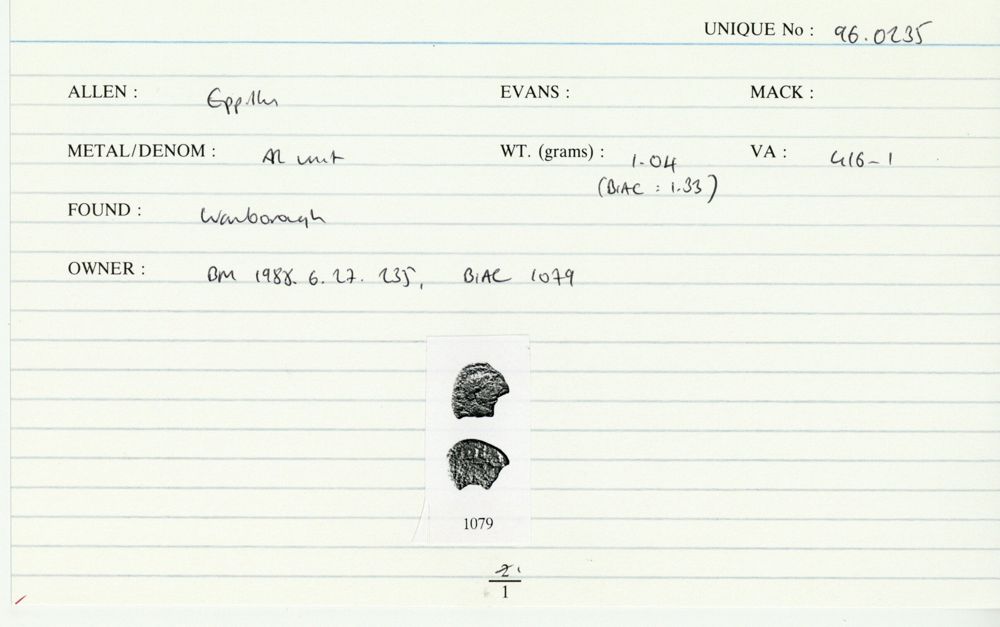 UNIQUE No : 96.0235
ALLEN : Eppillus EVANS : MACK :
METAL/DENOM : AR unit WT. (grams) : 1.04 VA : 416-1
(BIAC : 1.33)
FOUND : Wanborough
OWNER : BM 1988.6.27.235, BIAC 1079
1079
2
1